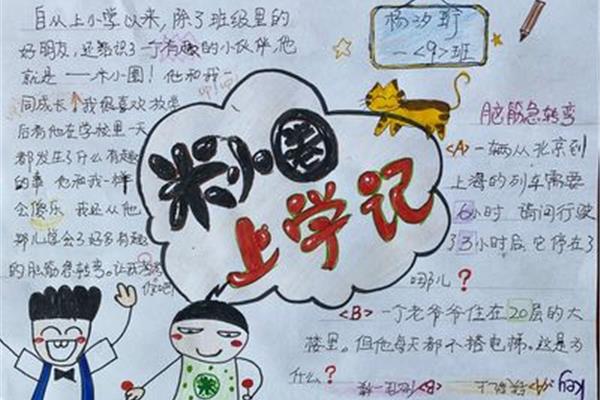 自从上小学以来，除了班级里的
好朋友，还结识了一个有趣的小伙伴，他
就是——米小圈！他和我一
同成长，我很喜欢放学
后看他在学校里一天
都发生了什么有趣
的事 他和我一样
会傻乐 我还从他
那儿学会了好多有趣
的脑筋急转弯。让我考考
你吧
米小圈
上学记
杨汐玎
一<9>班
脑筋急转弯
<A>一辆从北京到
上海的列车需要
6小时 请问行驶
了3小时后，它停在了
哪儿？
<B>一个老爷爷住在20层的大
楼里。但他每天都不搭电梯。这是为
什么？
Key